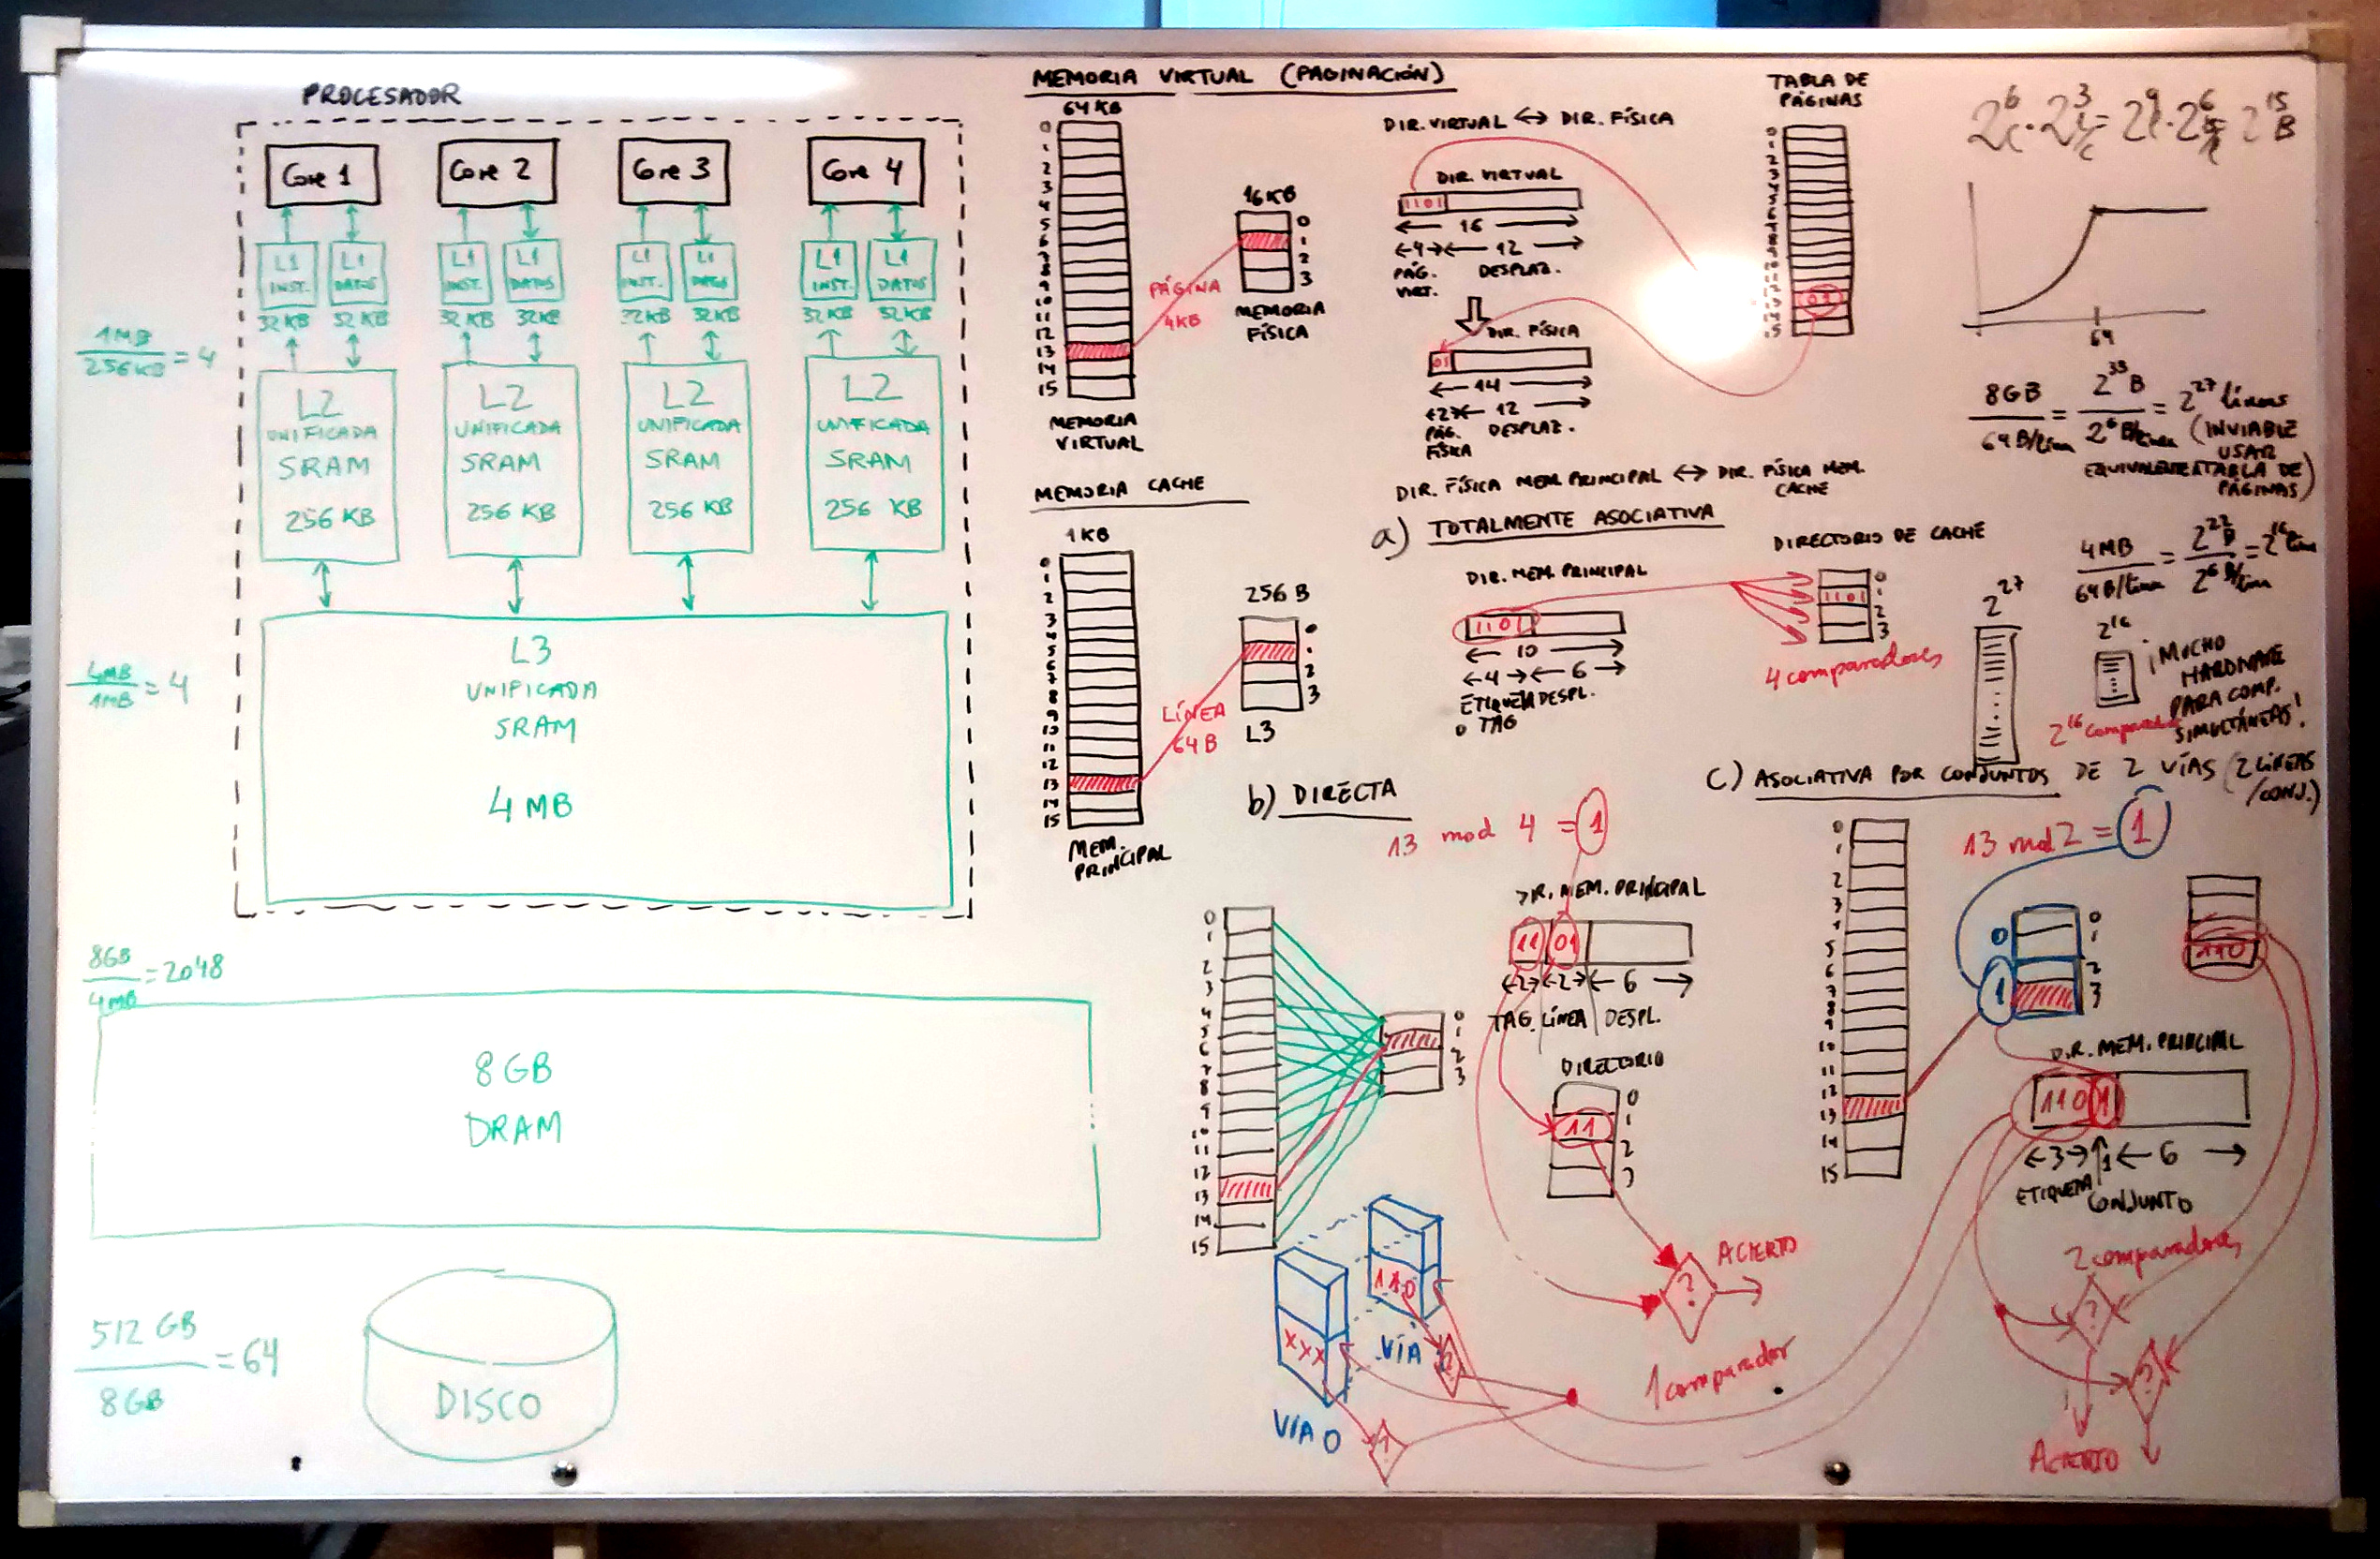 PROCESADOR
Core 1
Core 2
Core 3
Core 4
L1 INST.
L1 DATOS
L1 INST.
L1 DATOS
L1 INST.
L1 DATOS
L1 INST.
L1 DATOS
32KB
32KB
32KB
32KB
32KB
32KB
32KB
32KB
1MB / 256KB = 4
L2
UNIFICADA
SRAM
256 KB
L2
UNIFICADA
SRAM
256 KB
L2
UNIFICADA
SRAM
256 KB
L2
UNIFICADA
SRAM
256 KB
4MB / 1MB = 4
L3
UNIFICADA
SRAM
4 MB
8GB / 4MB = 2048
8GB
DRAM
512 GB / 8GB = 64
DISCO
MEMORIA VIRTUAL (PAGINACIÓN)
64KB
0
1
2
3
4
5
6
7
8
9
10
11
12
13
14
15
MEMORIA
VIRTUAL
PÁGINA
4KB
16KB
0
1
2
3
MEMORIA
FÍSICA
DIR. VIRTUAL ↔ DIR. FÍSICA
DIR. VIRTUAL
1101
16
4
12
PÁG.
VIRT.
DESPLAZ.
DIR. FÍSICA
01
14
2
12
PÁG.
FÍSICA
DESPLAZ.
TABLA DE
PÁGINAS
0
1
2
3
4
5
6
7
8
9
10
11
12
13
14
15
01
64
8GB / 64B/línea = 2^33 B / 2^6 B/línea = 2^27 líneas
(INVIABLE
USAR
EQUIVALENTE A TABLA DE
PÁGINAS)
MEMORIA CACHE
1KB
0
1
2
3
4
5
6
7
8
9
10
11
12
13
14
15
MEM.
PRINCIPAL
LÍNEA
64B
256 B
0
1
2
3
L3
DIR. FÍSICA MEM. PRINCIPAL ↔ DIR. FÍSICA MEM.
CACHE
a) TOTALMENTE ASOCIATIVA
DIR. MEM. PRINCIPAL
1101
10
4
6
ETIQUETA
O TAG
DESPL.
DIRECTORIO DE CACHE
0
1
2
3
1101
4 comparadores
4MB / 64B/línea = 2^22 B / 2^6 B/línea = 2^16
2^27
2^16
¡MUCHO
HARDWARE
PARA COMP.
SIMULTÁNEAS!
b) DIRECTA
13 mod 4 = 1
0
1
2
3
4
5
6
7
8
9
10
11
12
13
14
15
0
1
2
3
DIR. MEM. PRINCIPAL
11 01
2
2
6
TAG LÍNEA DESPL.
DIRECTORIO
0
1
2
3
11
?
ACIERTO
1 comparador
c) ASOCIATIVA POR CONJUNTOS DE 2 VÍAS (2 LÍNEAS
/CONJ.)
13 mod 2 = 1
0
1
2
3
4
5
6
7
8
9
10
11
12
13
14
15
0
1
0
1
2
3
110
DIR. MEM. PRINCIPAL
110 1
3
1
6
ETIQUETA
CONJUNTO
2 comparadores
?
?
ACIERTO
XXX
VÍA 0
110
VÍA 1
?
?